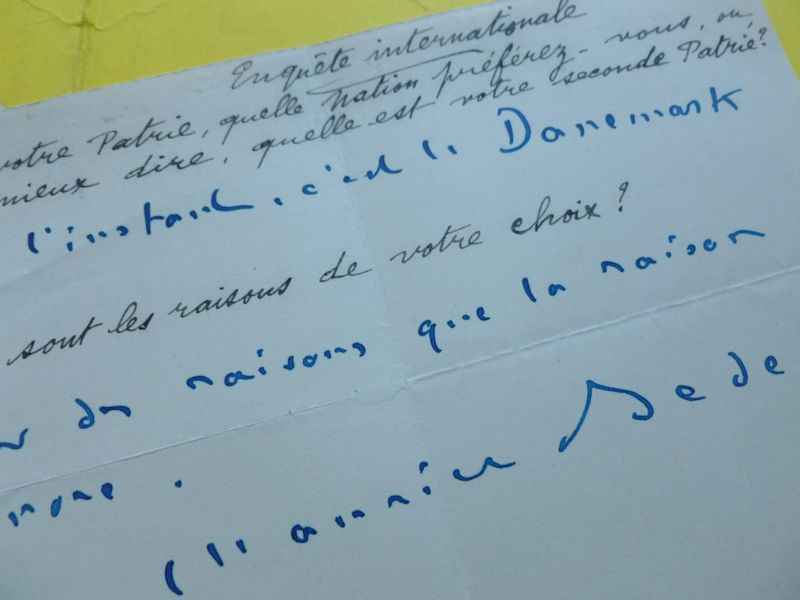 Enquête internationale
votre Patrie, quelle Nation préférez-vous, ou,
mieux dire, quelle est votre seconde Patrie?
l'instant, c'est le Danemark
sont les raisons de votre choix?
des raisons que la raison